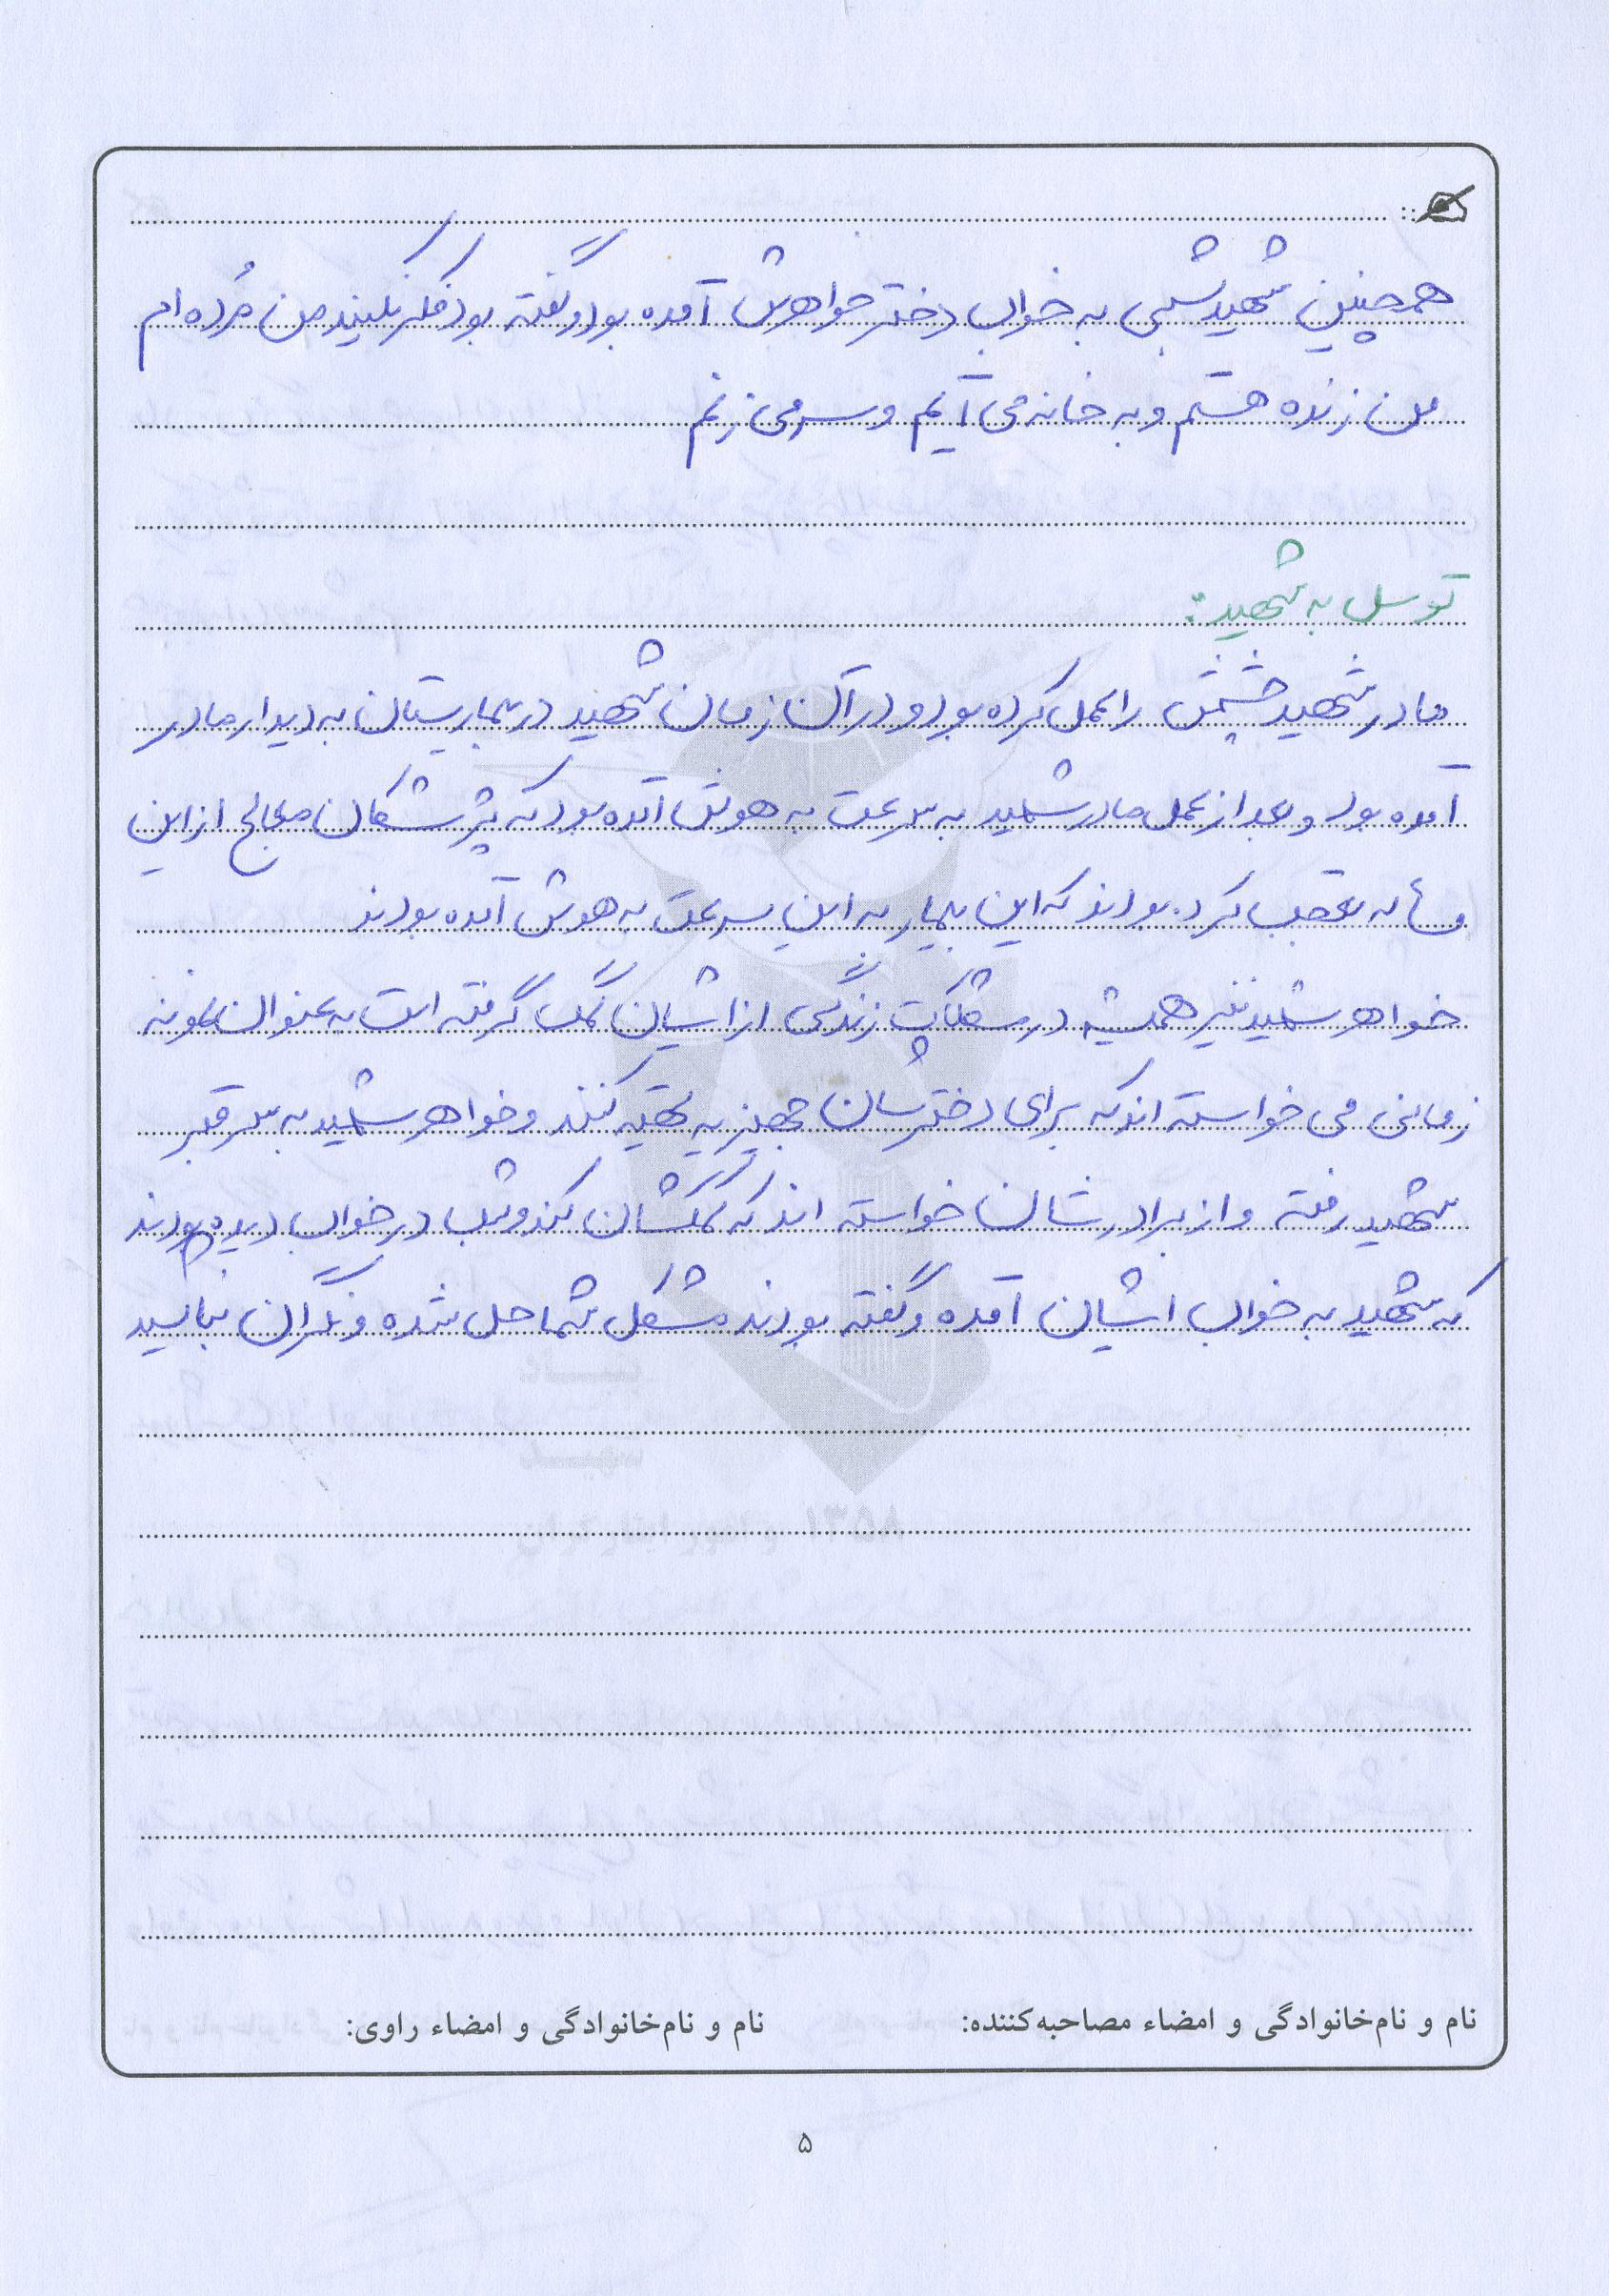 همچنین شهید شبی به خواب دختر خواهرش آمده بود و گفته بود فکر نکنید من مُرده ام
من زنده هستم و به خانه می آیم و سر می زنم
توسل به شهید:
مادر شهید چشمش را عمل کرده بود و در آن زمان شهید در بیمارستان به دیدار مادر
آمده بود و بعد از عمل مادر شهید به سرعت به هوش آمده بود که پزشکان معالج از این
به تعجب کرده بودند که این بیمار به این سرعت به هوش آمده بودند
خواهر شهید نیز همیشه در مشکلات زندگی از ایشان کمک گرفته است به عنوان نمونه
زمانی می خواسته اند که برای دخترشان جهیزیه تهیه کنند و خواهر شهید به سر قبر
شهید رفته و از برادرشان خواسته اند که کمکشان کند و شب در خواب دیده بودند
که شهید به خواب ایشان آمده و گفته بودند مشکل شما حل شده و نگران نباشید
۱۳۵۸
نام و نام‌خانوادگی و امضاء مصاحبه‌کننده: نام و نام‌خانوادگی و امضاء راوی:
۵